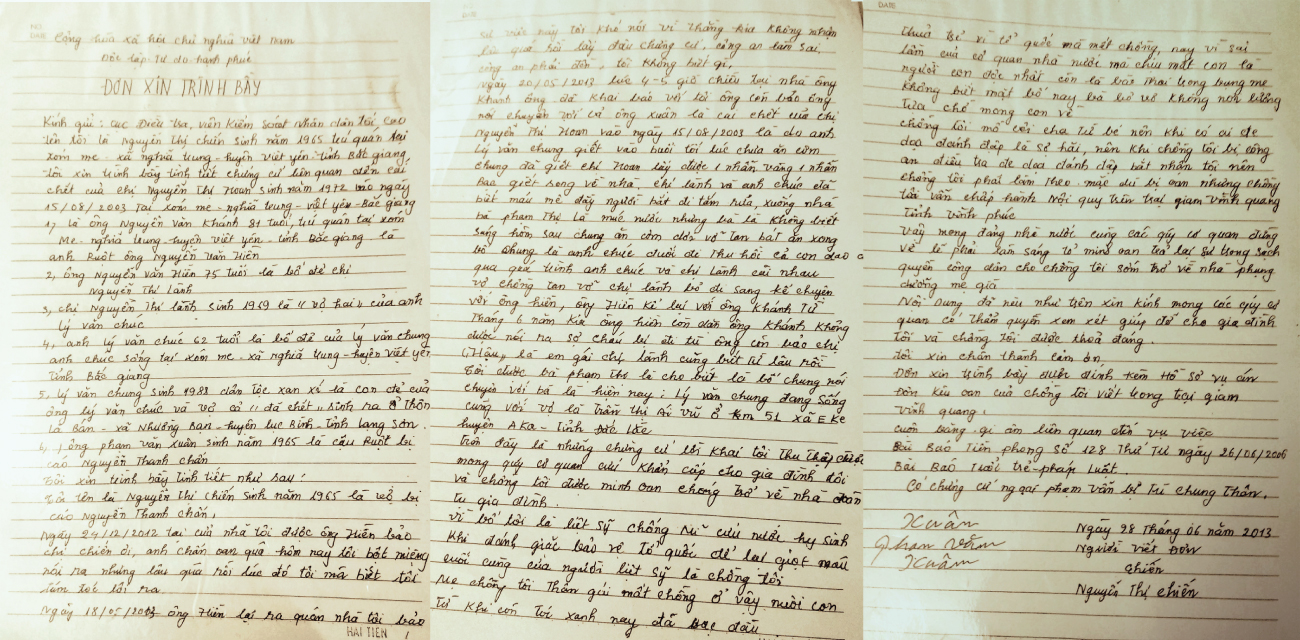 Cộng hòa xã hội chủ nghĩa việt nam
Độc lập Tự do hạnh phúc
ĐƠN XIN TRÌNH BÀY
Kính gửi: cục Điều tra, viện Kiểm soát nhân dân tối cao
tên tôi là Nguyễn Thị chiến Sinh năm 1965 trú quán tại
xóm me - xã nghĩa trung - huyện việt yên - tỉnh Bắc giang
Tôi xin trình bày tình tiết chứng cứ liên quan đến cái
chết của chị Nguyễn Thị Hoan Sinh năm 1972 vào ngày
15/08/2003 Tại xóm me - nghĩa trung - việt yên - Bắc giang
1, là ông Nguyễn Văn Khánh 81 tuổi, trú quán tại xóm
Me - nghĩa trung - huyện việt yên - tỉnh Bắc giang là
anh Ruột ông Nguyễn văn Hiền
2, ông Nguyễn văn Hiền 75 tuổi là bố đẻ chị
Nguyễn Thị Lành
3, chị Nguyễn Thị lành sinh 1969 là "vợ hai" của anh
Lý văn chúc
4, anh lý văn chúc 62 tuổi là bố đẻ của lý văn chung
anh chúc sống tại xóm me - xã nghĩa trung - huyện việt yên
tỉnh Bắc giang
5, lý văn chung sinh 1988 dân tộc xan xí là con đẻ của
ông lý văn chúc và vợ cả "đã chết" sinh ra ở Thôn
là Bản - xã Nhượng Ban - huyện lục Bình - Tỉnh Lạng Sơn.
6, ông phạm văn xuân sinh năm 1965 là cậu Ruột bị
cáo Nguyễn Thanh chấn
Tôi xin trình bày tình tiết như sau:
Tôi tên là Nguyễn Thị Chiến Sinh năm 1965 là vợ bị
cáo Nguyễn Thanh chấn.
Ngày 24/12/2012 tại cửa nhà tôi được ông Hiền bảo
chị chiến ơi, anh chấn oan quá hôm nay tôi bột miệng
nói ra nhưng lâu quá rồi lúc đó tôi mà biết tôi
túm tóc lôi ra
Ngày 18/05/2013 ông Hiền lại ra quán nhà tôi bảo
HAI TIEN
sự việc này tôi khó nói vì thằng kia không nhận
là quá hỏi lấy đâu chứng cứ, công an làm sai
công an phải đền, tôi không biết gì.
ngày 20/05/2013 lúc 4-5 giờ chiều tại nhà ông
Khánh ông đã khai báo với tôi ông còn bảo ông
nói chuyện với cả ông xuân là cái chết của chị
Nguyễn Thị Hoan vào ngày 15/08/2003 là do anh
Lý văn chung giết vào buổi tối lúc chưa ăn cơm
chung đã giết chị Hoan lấy được 1 nhẫn vàng 1 nhẫn
bạc giết song về nhà chị lành và anh chúc đã
biết máu me đầy người bắt đi tắm rửa, xuống nhà
bà phạm Thị là múc nước nhưng bà là không biết
sáng hôm sau chung ăn cơm vỡ tan bát ăn xong
bố chung là anh chúc đuổi đi Thu hồi cả con dao
qua quá trình anh chúc và chị Lành cãi nhau
vợ chồng tan vỡ chị lành bỏ đi sang kể chuyện
với ông hiền, ông Hiền kể lại với ông Khánh Từ
Tháng 6 năm kia ông hiền còn dặn ông Khánh Không
được nói ra sợ cháu bị đi tù ông còn bảo chị
(Hậu) là em gái chị lành cũng biết từ lâu rồi
Tôi được bà phạm thị là cho biết là bố chung nói
chuyện với bà là hiện nay: Lý văn chung đang sống
cùng với vợ là Trần Thị Ái Vũ ở Km 51 xã E Ke
huyện A Ka - Tỉnh Đắc Lắc
trên đây là những chứng cứ lời Khai tôi thu thập được
mong quý cơ quan cứu Khẩn cấp cho gia đình tôi
và chồng tôi được minh oan chóng trở về nhà đoàn
tụ gia đình.
vì bố tôi là liệt sỹ chống Mĩ cứu nước hy sinh
Khi đánh giặc bảo vệ tổ quốc để lại giọt máu
cuối cùng của người liệt sỹ là chồng tôi
Mẹ chồng tôi Thân gái mất chồng ở vậy nuôi con
Từ khi còn tóc xanh nay đã bạc đầu
thuở trẻ vì tổ quốc mà mất chồng, nay vì sai
lầm của cơ quan nhà nước mà chịu mất con là
người con độc nhất còn là bào thai trong bụng mẹ
không biết mặt bố nay bà bơ vơ không nơi nương
tựa chờ mong con về
chồng tôi mồ côi cha từ bé nên khi có ai đe
doạ đánh đập là sợ hãi, nên khi chồng tôi bị công
an điều tra đe doạ đánh đập bắt nhận tội nên
chồng tôi phải làm Theo - mặc dù bị oan nhưng chồng
tôi vẫn chấp hành Nội quy trên trại giam vĩnh quang
tỉnh vĩnh phúc
Vậy mong đảng nhà nước cùng các quý cơ quan đứng
về lẽ phải làm sáng tỏ minh oan trả lại sự trong sạch
quyền công dân cho chồng tôi sớm trở về nhà phụng
dưỡng mẹ già
Nội dung đã nêu như trên xin kính mong các quý cơ
quan có thẩm quyền xem xét giúp đỡ cho gia đình
tôi và chồng tôi được thoả đáng.
Tôi xin chân thành cảm ơn
Đơn xin trình bày được đính kèm Hồ sơ vụ án
Đơn kêu oan của chồng tôi viết trong trại giam
vĩnh quang.
cuốn băng ghi âm liên quan đến vụ việc
Bài Báo Tiền phong số 128 Thứ Tư ngày 26/06/2006
Bài Báo Tuổi trẻ - pháp luật.
Có chứng cứ ngoại phạm vẫn bị Tù chung Thân.
Xuân
Phạm Văn
Xuân
Ngày 28 Tháng 06 năm 2013
Người viết Đơn
Chiến
Nguyễn Thị Chiến